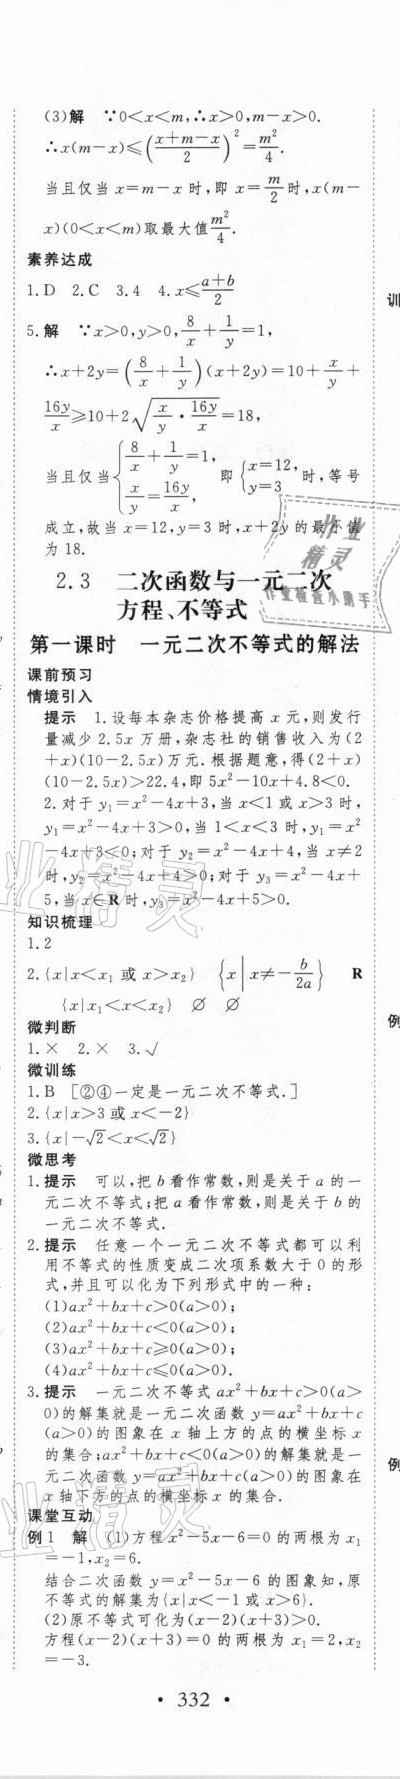 (3)解 ∵0<x<m,∴x>0,m-x>0.
∴x(m-x)≤((x+m-x)/2)²=m²/4.
当且仅当 x=m-x 时,即 x=m/2时,x(m-
x)(0<x<m)取最大值m²/4.
素养达成
1.D 2.C 3.4 4.x≤(a+b)/2
5.解 ∵x>0,y>0,8/x+1/y=1,
∴x+2y=(8/x+1/y)(x+2y)=10+x/y+
16y/x≥10+2√(x/y·16y/x)=18,
当且仅当{8/x+1/y=1, x/y=16y/x, 即{x=12, y=3 时,等号
成立,故当 x=12,y=3 时,x+2y 的最小值
为 18.
2.3 二次函数与一元二次
方程、不等式
第一课时 一元二次不等式的解法
课前预习
情境引入
提示 1.设每本杂志价格提高 x 元,则发行
量减少 2.5x 万册,杂志社的销售收入为(2
+x)(10-2.5x)万元.根据题意,得(2+x)
(10-2.5x)>22.4,即 5x²-10x+4.8<0.
2.对于 y₁=x²-4x+3,当 x<1 或 x>3 时,
y₁=x²-4x+3>0,当 1<x<3 时,y₁=x²
-4x+3<0;对于 y₂=x²-4x+4,当 x≠2
时,y₂=x²-4x+4>0;对于 y₃=x²-4x+
5,当 x∈R 时,y₃=x²-4x+5>0.
知识梳理
1.2
2.{x|x<x₁ 或 x>x₂} {x|x≠-b/2a} R
{x|x₁<x<x₂} ∅ ∅
微判断
1.× 2.× 3.√
微训练
1.B [②④一定是一元二次不等式.]
2.{x|x>3 或 x<-2}
3.{x|-√2<x<√2}
微思考
1.提示 可以,把 b 看作常数,则是关于 a 的一
元二次不等式;把 a 看作常数,则是关于 b 的
一元二次不等式.
2.提示 任意一个一元二次不等式都可以利
用不等式的性质变成二次项系数大于 0 的形
式,并且可以化为下列形式中的一种:
(1)ax²+bx+c>0(a>0);
(2)ax²+bx+c<0(a>0);
(3)ax²+bx+c≥0(a>0);
(4)ax²+bx+c≤0(a>0).
3.提示 一元二次不等式 ax²+bx+c>0(a>
0)的解集就是一元二次函数 y=ax²+bx+c
(a>0)的图象在 x 轴上方的点的横坐标 x
的集合;ax²+bx+c<0(a>0)的解集就是一
元二次函数 y=ax²+bx+c(a>0)的图象在
x 轴下方的点的横坐标 x 的集合.
课堂互动
例 1 解 (1)方程 x²-5x-6=0 的两根为 x₁
=-1,x₂=6.
结合二次函数 y=x²-5x-6 的图象知,原
不等式的解集为{x|x<-1 或 x>6}.
(2)原不等式可化为(x-2)(x+3)>0.
方程(x-2)(x+3)=0 的两根为 x₁=2,x₂
=-3.
• 332 •
训
例
例
作业
精灵
作业检查小助手
业精灵
业精灵